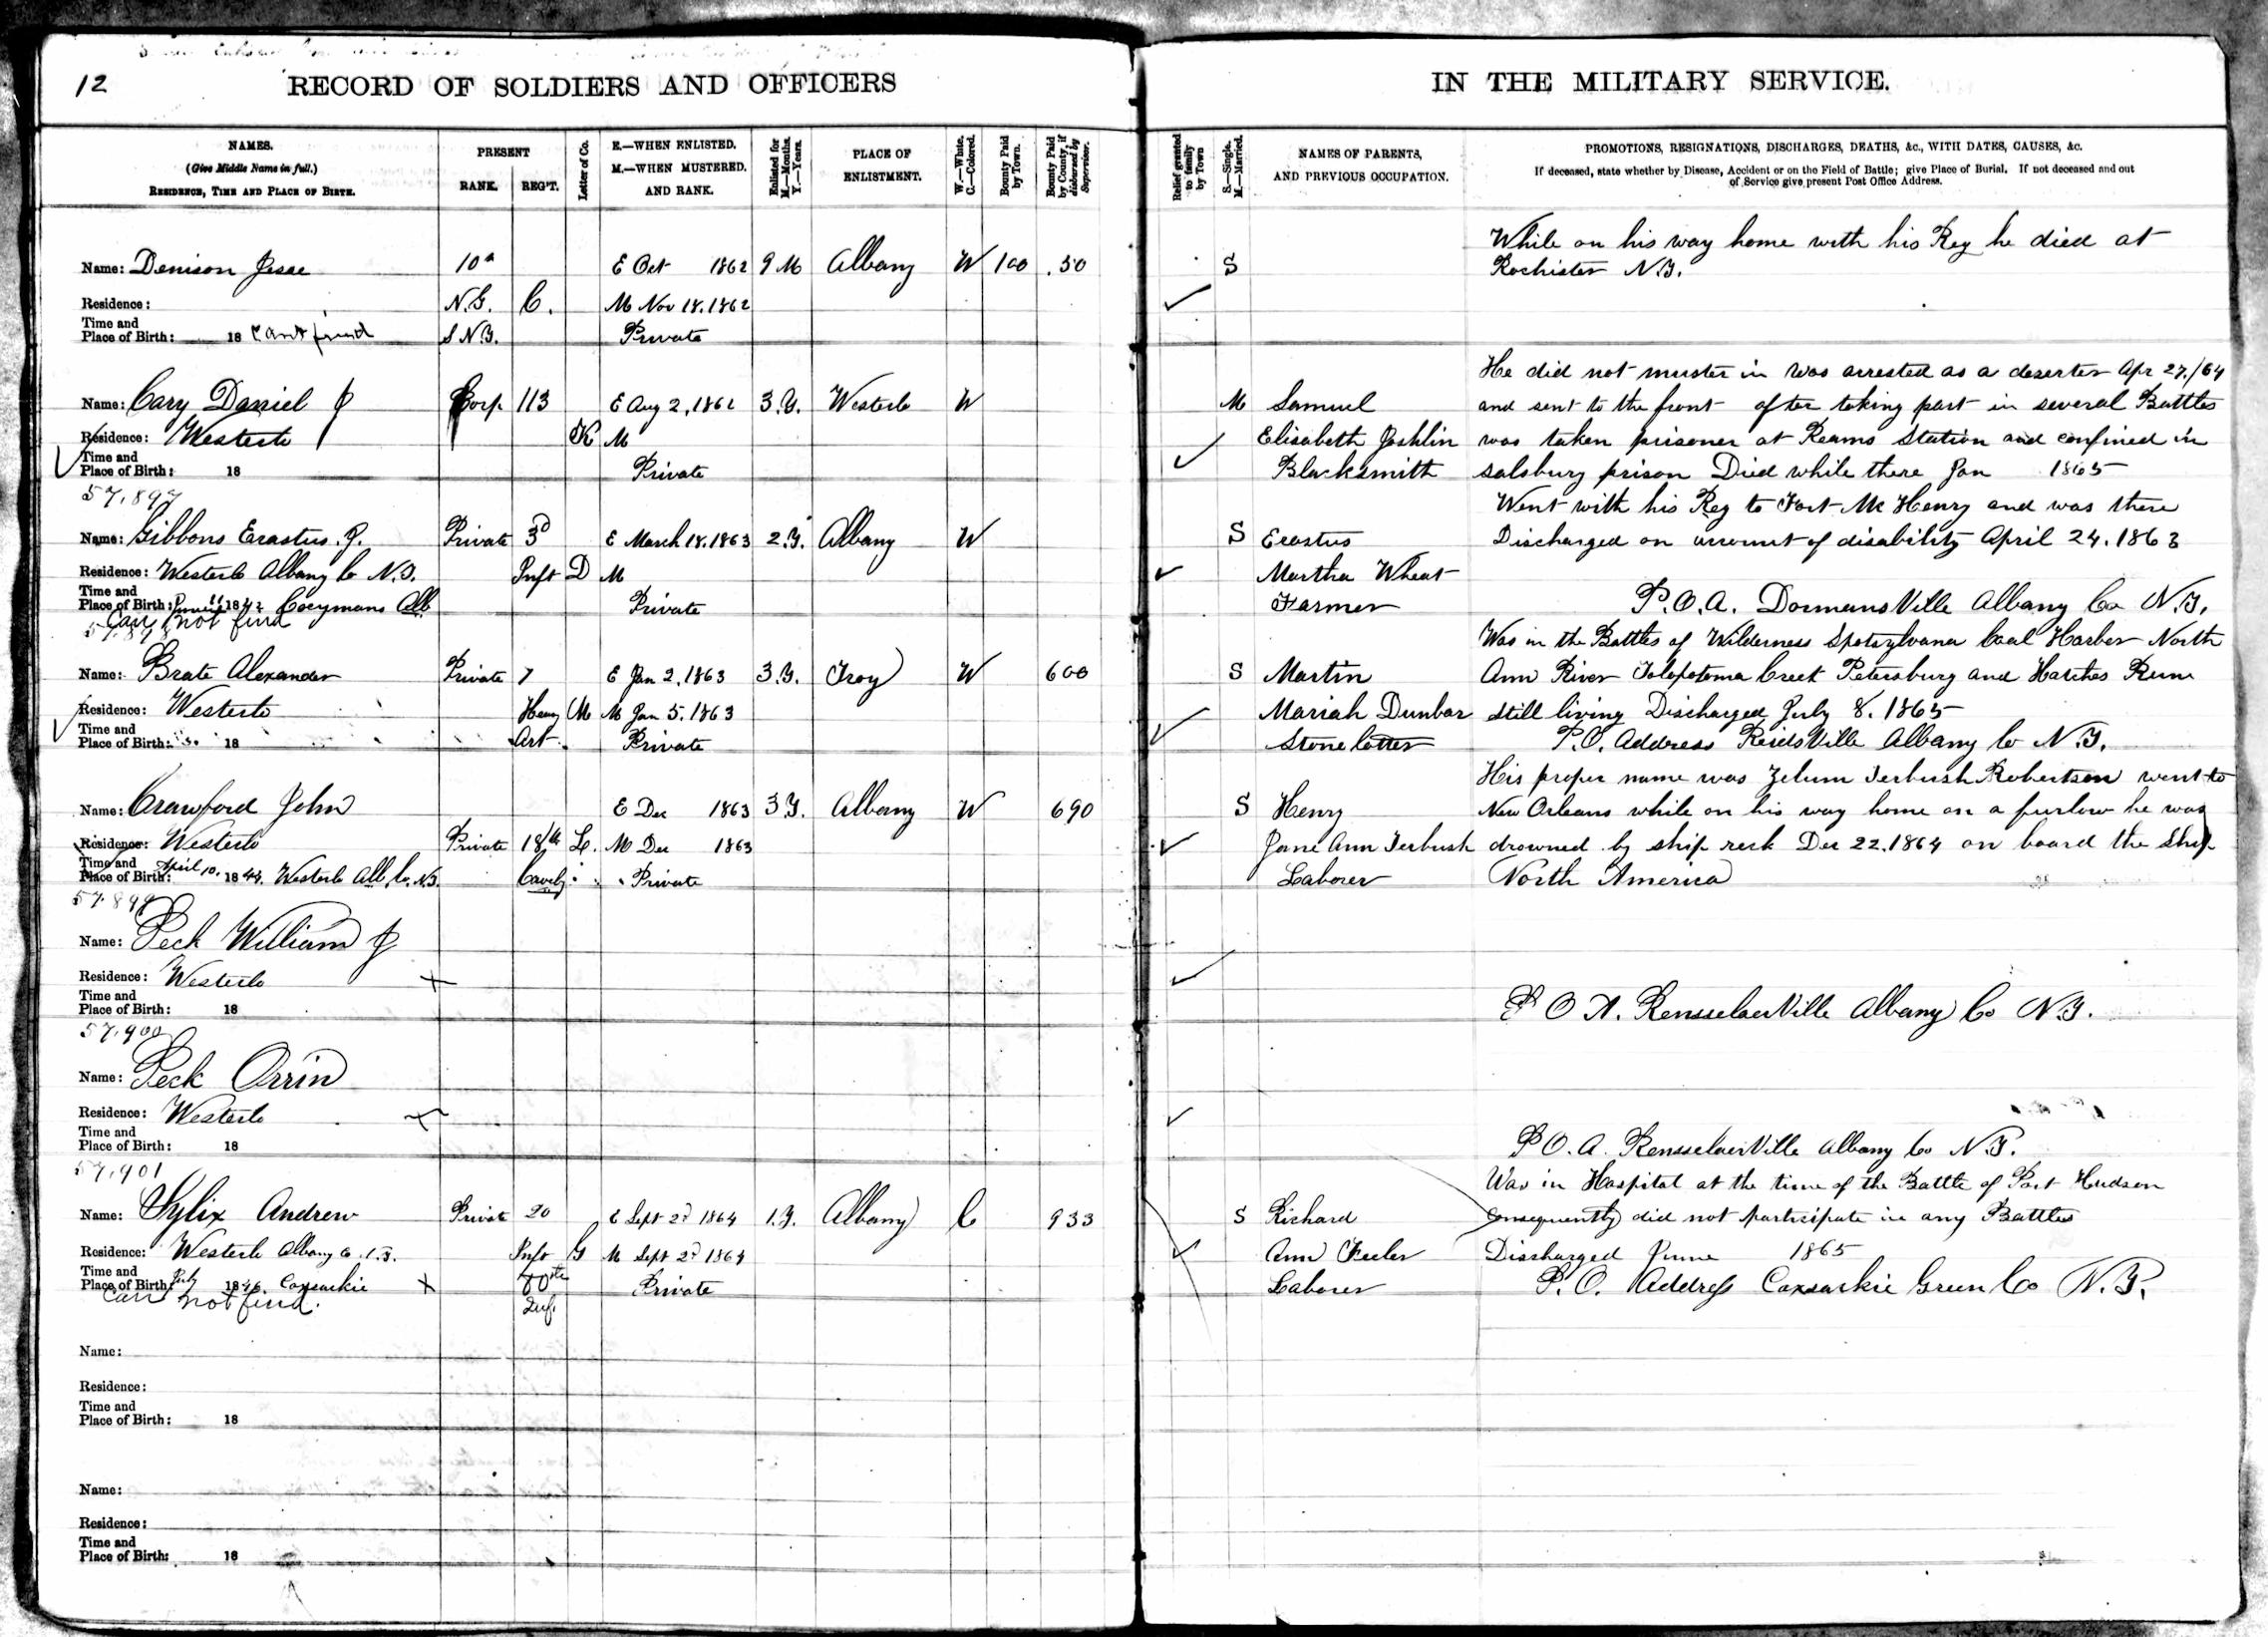 12
RECORD OF SOLDIERS AND OFFICERS
IN THE MILITARY SERVICE.
NAMES.
(Give Middle Name in full.)
RESIDENCE, TIME AND PLACE OF BIRTH.
PRESENT
RANK.
REG'T.
Letter of Co.
E.—WHEN ENLISTED.
M.—WHEN MUSTERED.
AND RANK.
Enlisted for
M.—Months.
Y.—Years.
PLACE OF
ENLISTMENT.
W.—White.
C.—Colored.
Bounty Paid
by Town.
Bounty Paid
by County, if
disbursed by
Supervisor.
Relief granted
to family
by Town
S.—Single.
M.—Married.
NAMES OF PARENTS,
AND PREVIOUS OCCUPATION.
PROMOTIONS, RESIGNATIONS, DISCHARGES, DEATHS, &c., WITH DATES, CAUSES, &c.
If deceased, state whether by Disease, Accident or on the Field of Battle; give Place of Burial. If not deceased and out
of Service give present Post Office Address.
While on his way home with his Reg he died at
Name: Denison Jesse 10 E Oct 1862 9 M Albany W 100 .50 S Rochister N.Y.
Residence: N.G. C. M Nov 18. 1862
Time and
Place of Birth: 18 Cant find S N.Y. Private
He did not muster in was arrested as a deserter Apr 27,/64
Name: Cary Daniel J Corp 113 E Aug 2, 1862 3.Y. Westerlo W M Samuel and sent to the front after taking part in several Battles
Residence: Westerlo K M Elisabeth Joshlin was taken prisoner at Reams Station and confined in
Time and
Place of Birth: 18 Private Blacksmith Salsbury prison Died while there Jan 1865
57.897
Went with his Reg to Fort Mc Henry and was there
Name: Gibbons Erastus. J. Private 3d E March 18. 1863 2.Y. Albany W S Erastus Discharged on account of disability April 24. 1863
Residence: Westerlo Albany Co N.Y. Inft D M Martha Wheat
Time and
Place of Birth: 1842 Coeymans Alb Private Farmer P.O.A. DormansVille Albany Co N.Y.
Can not find
57.898
Was in the Battles of Wilderness Spotsylvana Coal Harber North
Name: Brate Alexander Private 7 E Jan 2. 1863 3.Y. Troy W 600 S Martin Ann River Tolopotoma Creek Petersburg and Hatches Runn
Residence: Westerlo Heavy M M Jan 5. 1863 Mariah Dunbar still living Discharged July 8. 1865
Time and
Place of Birth: 18 Art. Private Stone Cutter P.O. Address ReidsVille Albany Co N.Y.
His proper name was Zelum Terbush Robertson went to
Name: Crawford John E Dec 1863 3 Y. Albany W 690 S Henry New Orleans while on his way home on a furlow he was
Residence: Westerlo Private 18th L. M Dec 1863 Jane Ann Terbush drowned by ship reck Dec 22. 1864 on board the Ship
Time and
Place of Birth: April 10. 1844. Westerlo Alb. Co. N.Y. Cavely Private Laborer North America
57.899
Name: Peck William J
Residence: Westerlo
Time and
Place of Birth: 18 P O A. RensselaerVille Albany Co N.Y.
57.900
Name: Peck Orrin
Residence: Westerlo
Time and
Place of Birth: 18 P O. A. RensselaerVille Albany Co N.Y.
57.901
Was in Hospital at the time of the Battle of Port Hudson
Name: Sylix Andrew Private 20 E Sept 2d 1864 1.Y. Albany C 933 S Richard Consequently did not participate in any Battles
Residence: Westerlo Albany Co. N.Y. Inft G M Sept 2d 1864 Ann Feeler Discharged June 1865
Time and
Place of Birth: July 1846. Coxsackie Private Laborer P. O. Address Coxsackie Green Co N.Y.
Can not find. Inf.
Name:
Residence:
Time and
Place of Birth: 18
Name:
Residence:
Time and
Place of Birth: 18